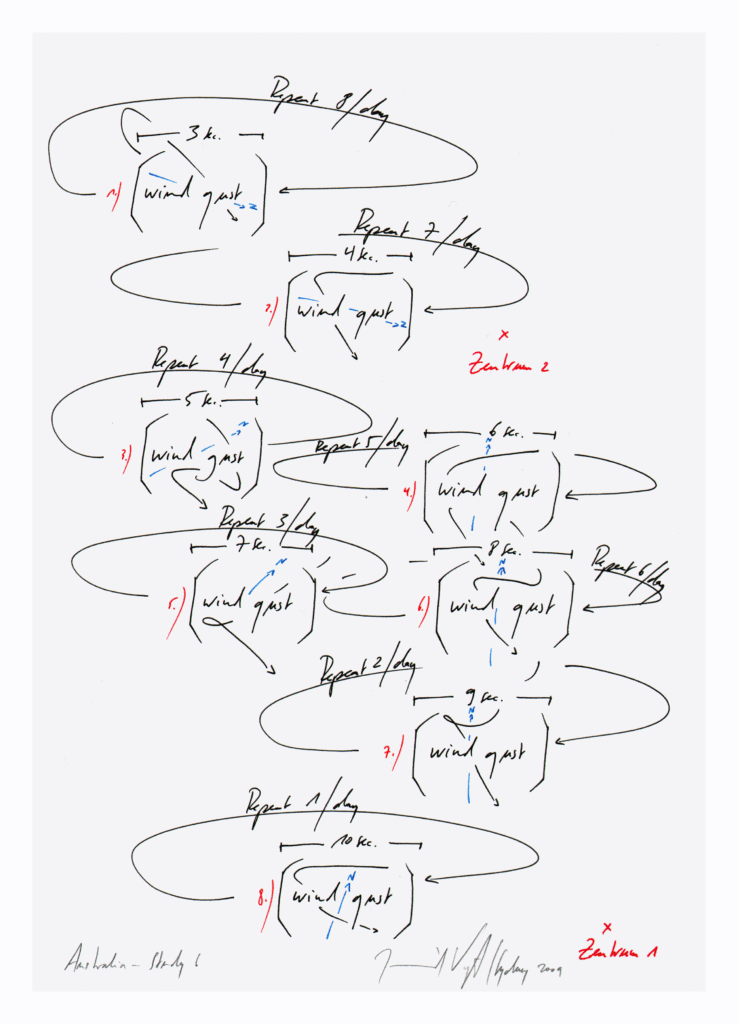 Repeat 8/day
3 sec.
1.) wind gust
N
Repeat 7/day
4 sec.
2.) wind gust
N
x
Zentrum 2
Repeat 4/day
5 sec.
3.) wind gust
N
Repeat 5/day
6 sec.
N
4.) wind gust
Repeat 3/day
7 sec.
N
5.) wind gust
8 sec.
N
Repeat 6/day
6.) wind gust
Repeat 2/day
9 sec.
N
7.) wind gust
Repeat 1/day
10 sec.
N
8.) wind gust
x
Zentrum 1
Australia – Study 6
Sydney 2009